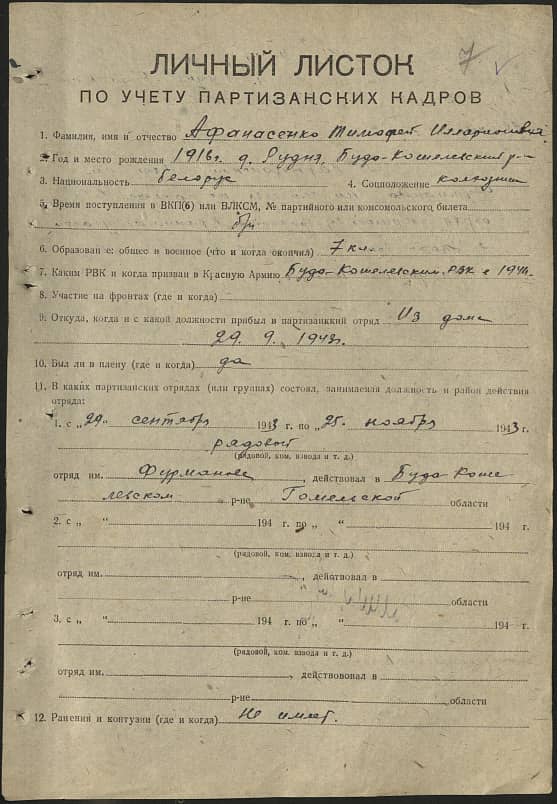 7
ЛИЧНЫЙ ЛИСТОК
ПО УЧЕТУ ПАРТИЗАНСКИХ КАДРОВ
1. Фамилия, имя и отчество Афанасенко Тимофей Илларионович
2. Год и место рождения 1916г. д. Рудня, Буда-Кошелевский р-н
3. Национальность белорус 4. Соцположение колхозник
5. Время поступления в ВКП(б) или ВЛКСМ, № партийного или комсомольского билета
б/п
6. Образование: общее и военное (что и когда окончил) 7 кл.
7. Каким РВК и когда призван в Красную Армию Буда-Кошелевским РВК в
8. Участие на фронтах (где и когда)
9. Откуда, когда и с какой должности прибыл в партизанккий отряд Из дома
29. 9. 1943г.
10. Был ли в плену (где и когда) да
11. В каких партизанских отрядах (или группах) состоял, занимаемая должность и район действия
отряда:
1. с „29“ сентября 1943 г. по „25“ ноября 1943 г.
рядовый
(рядовой, ком. взвода и т. д.)
отряд им. Фурманова, действовал в Буда-Коше
левском р-не Гомельской области
2. с „ “ 194 г. по „ “ 194 г.
(рядовой, ком. взвода и т. д.)
отряд им. , действовал в
р-не области
3. с „ “ 194 г. по „ “ 194 г.
(рядовой, ком. взвода и т. д.)
отряд им. , действововал в
р-не области
12. Ранения и контузии (где и когда) Не имеет.